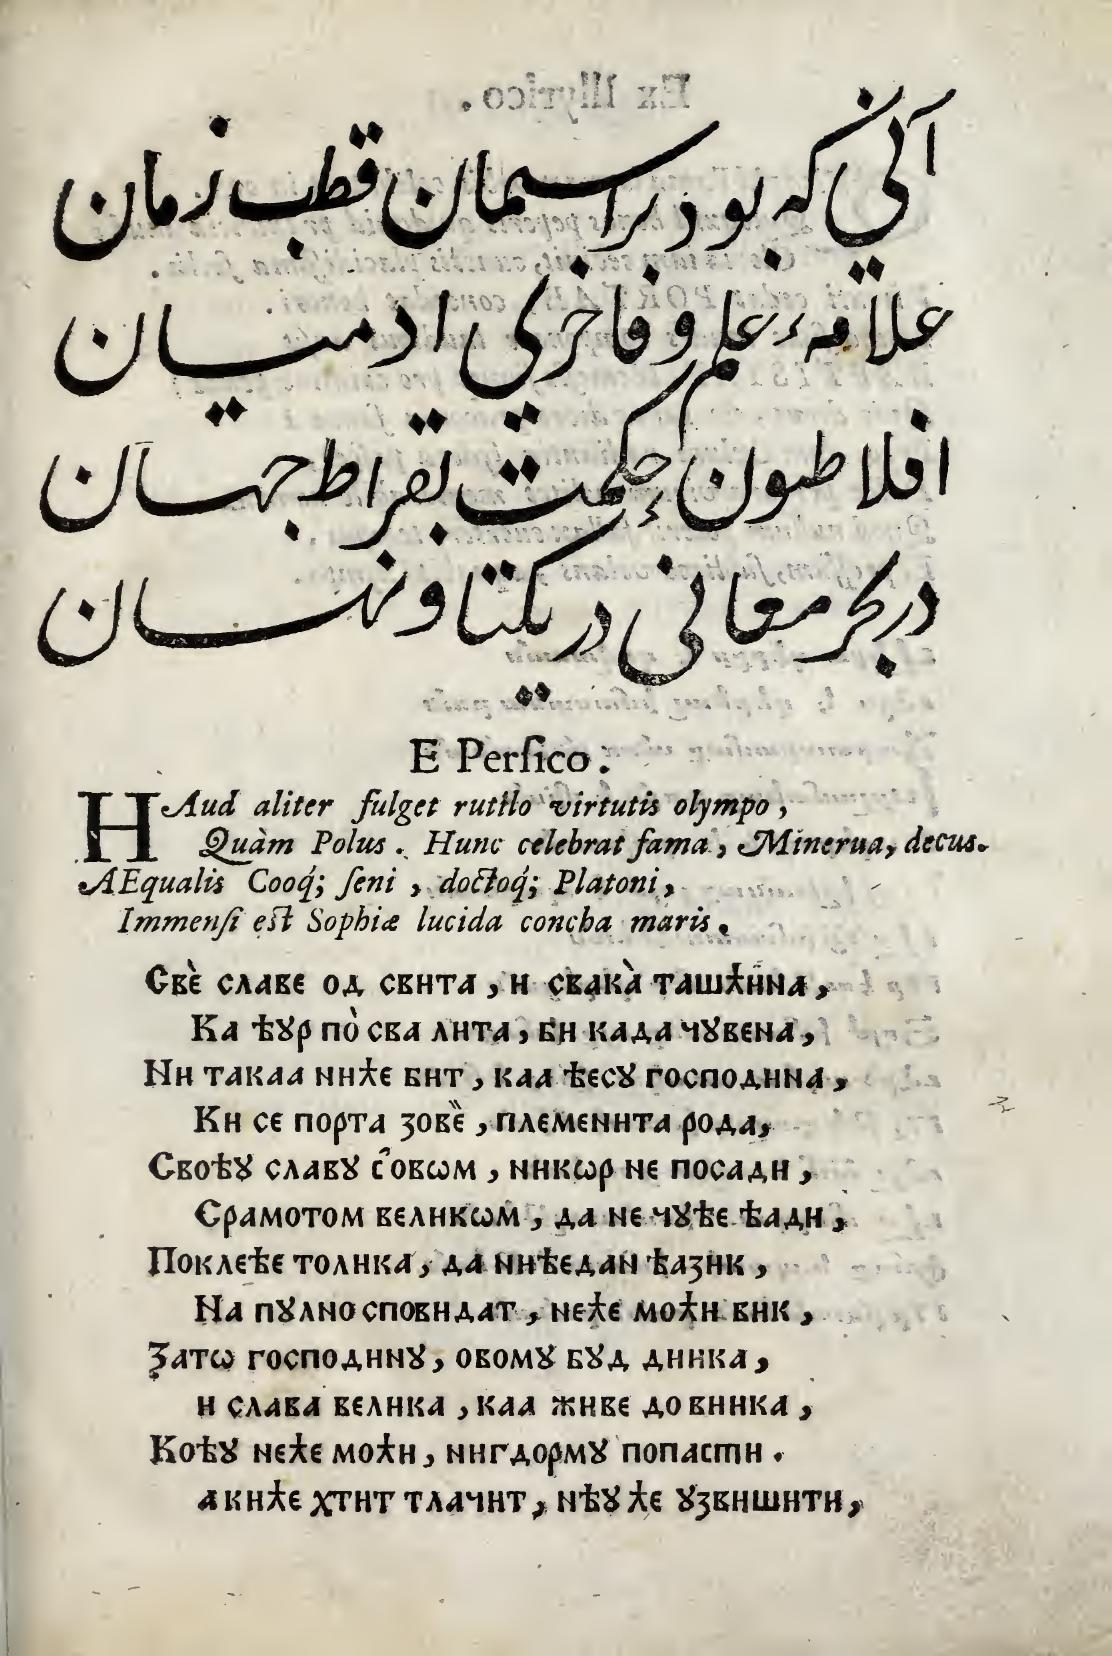 آنی که بود بر اسمان قطب زمان
علامهٔ علم و فاخری ادمیان
افلاطون حکمت بقراط جهان
در بحر معانی در یکتا و نهان
E Perſico.
HAud aliter fulget rutilo virtutis olympo,
Quàm Polus. Hunc celebrat fama, Minerua, decus.
AEqualis Cooq́; ſeni, doctoq́; Platoni,
Immenſi eſt Sophiæ lucida concha maris.
Свѐ славе од свита, и свака̀ ташћина,
Ка ѣꙋр по̀ сва лита, би када чꙋвена,
Ни такаа ниће бит, каа ѣесꙋ господина,
Ки се порта зове̏, племенита рода,
Своѣꙋ славꙋ с овѡм, никѡр не посади,
Срамотом великѡм, да не чꙋѣе ѣади,
Поклеѣе толика, да ниѣедан ѣазик,
На пꙋлно сповидат, неће моћи вик,
Затѡ господинꙋ, овомꙋ бꙋд дника,
и слава велика, каа живе до виика,
Коѣꙋ неће моћи, нигдормꙋ попасти.
а киће хтит тлачит, нѣꙋ ће ꙋзвишити,